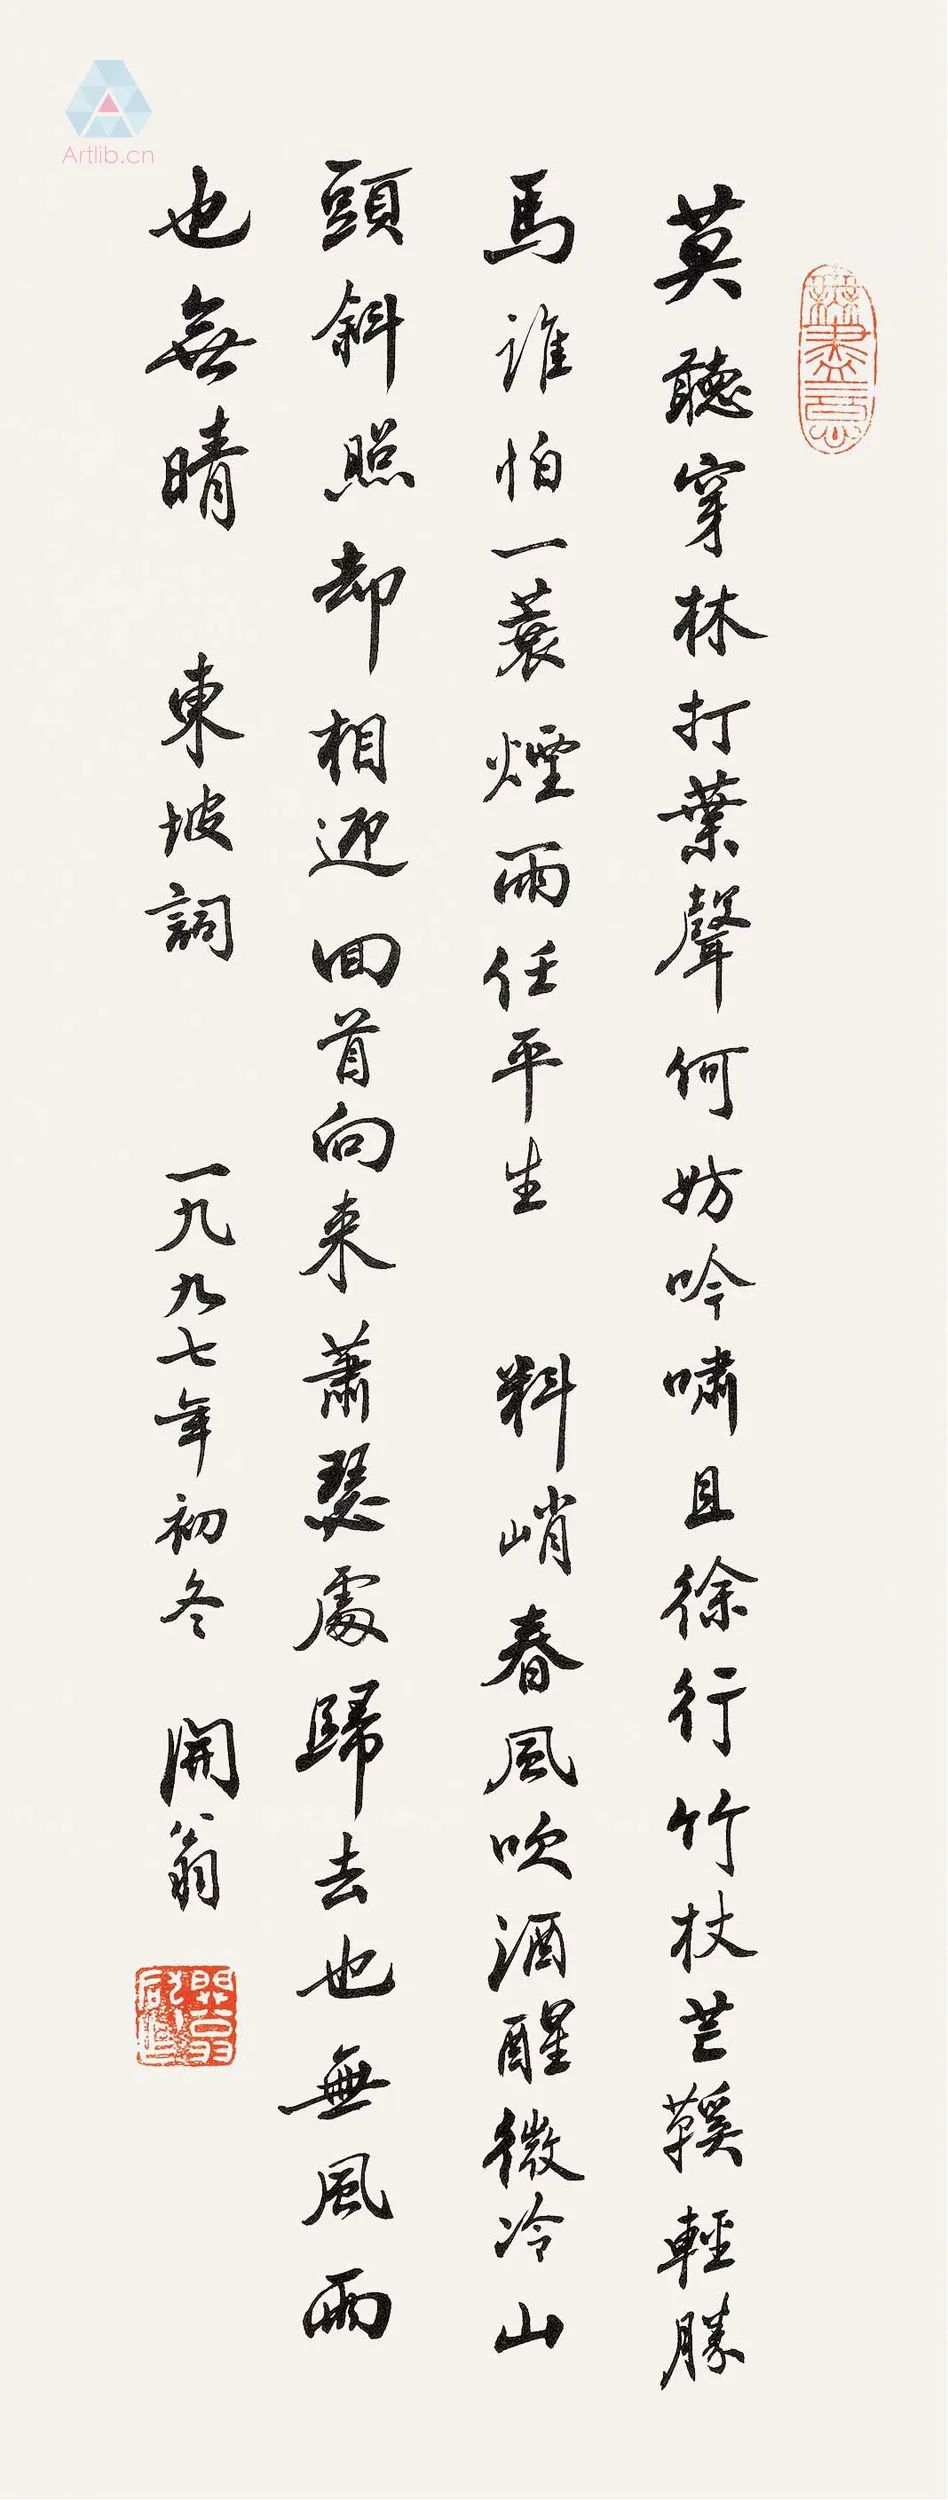 Artlib.cn
無盡意
莫聽穿林打葉聲何妨吟嘯且徐行竹杖芒鞵輕勝
馬誰怕一蓑煙雨任平生 料峭春風吹酒醒微冷山
頭斜照却相迎回首向来蕭瑟處歸去也無風雨
也無晴 東坡詞 一九九七年初冬 開翁